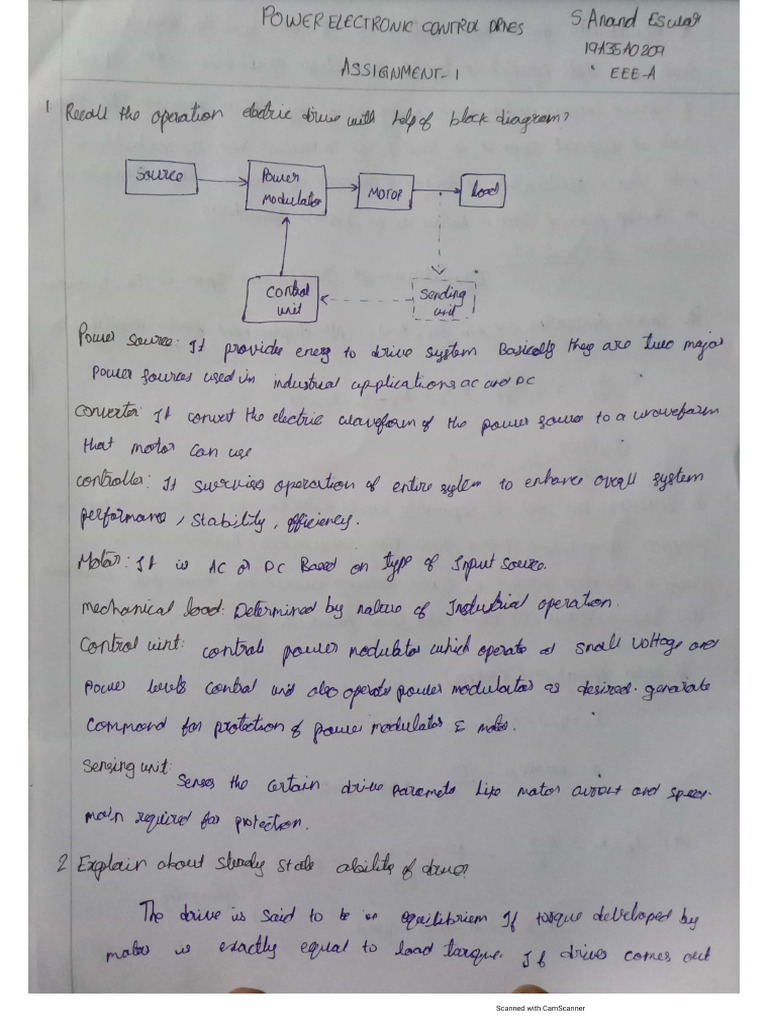 POWER ELECTRONIC CONTROL DRIVES
S. Anand Eswar
19A35A0209
EEE-A
ASSIGNMENT-1
1 Recall the operation electric drive with help of block diagram?
Source
Power Modulator
MOTOR
Load
Control unit
Sending unit
Power Source: It provides energ to drive system Basically they are two major
power sources used in industrial applications AC and DC
Converter: It convert the electric waveform of the power source to a waveform
that motor can use
Controller: It survises operation of entire system to enhance overall system
performance, stability, efficiency.
Motor: It is AC or DC Based on type of Input source.
mechanical load: Determined by nature of Industrial operation.
Control uint: controls power modulator which operate at small voltage and
Power levels control unit also operate power modulator as desired. generate
Command for protection of power modulator & motor.
Sensing unit:
Senses the certain drive paramets like motor and speed.
main required for protection.
2 Explain about steady state ability of drive?
The drive is said to be in equilibriem If torque developed by
motor is exactly equal to load tarque. If drive comes out
Scanned with CamScanner